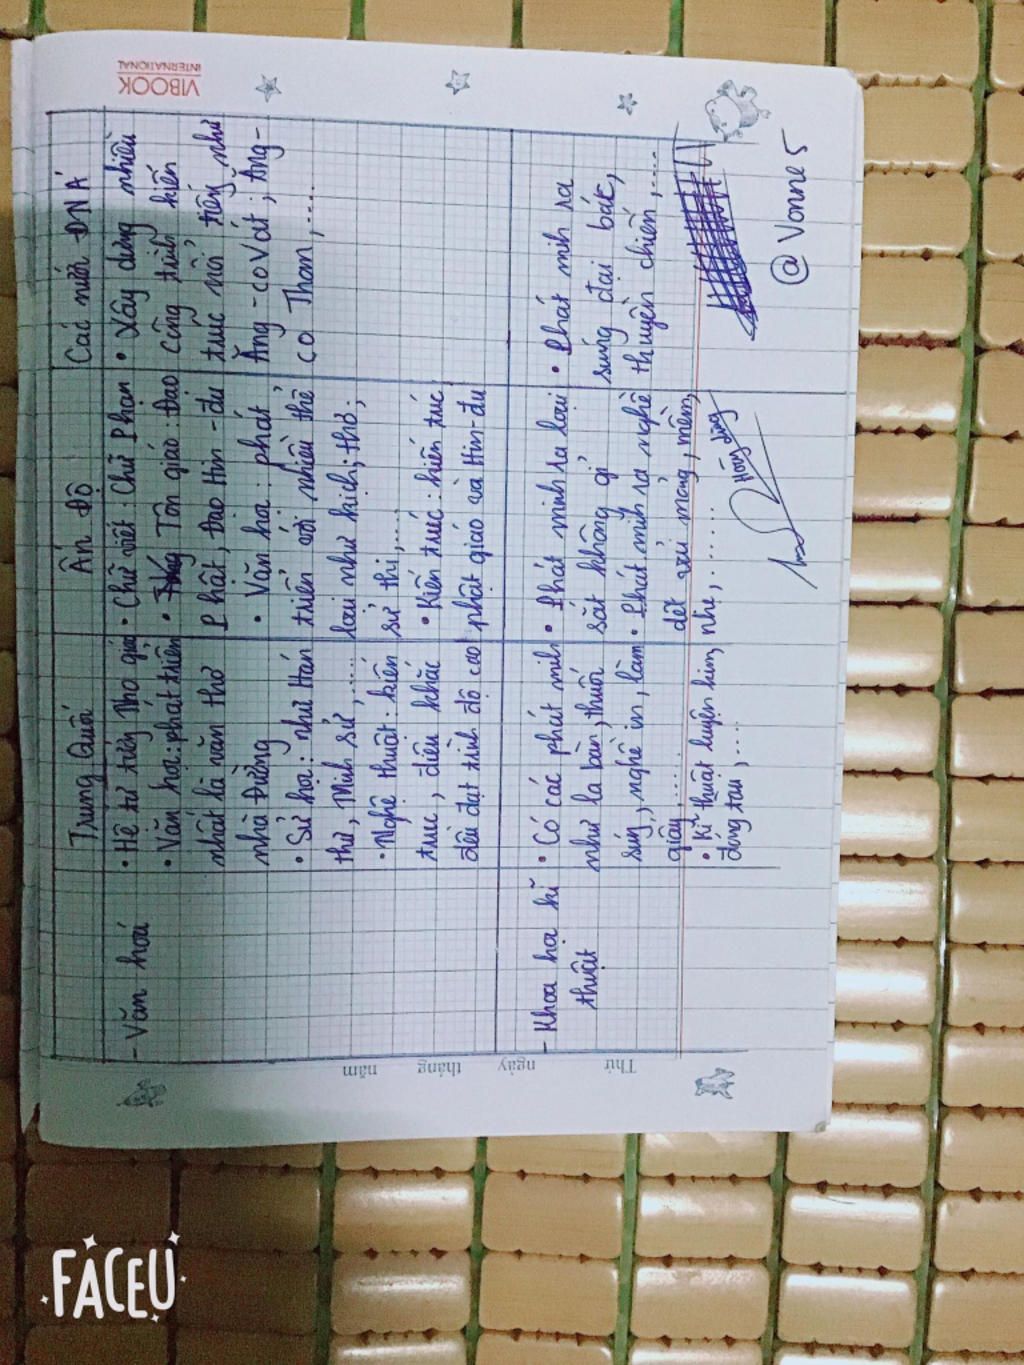 Trung Quốc
Ấn Độ
Các nước ĐN Á
- Văn hoá
• Hê tư tưởng Nho giáo
• Văn học: phát triển
nhất là văn thơ
nhà Đường
• Sử học: như Hán
thư, Minh sử,......
• Nghệ thuật: kiến
trúc, điêu khắc
đều đạt trình độ cao
• Chữ viết: Chữ Phạn
• Tôn giáo: Đạo
Phật, Đạo Hin-đu
• Văn học: phát
triển với nhiều thể
loại như kịch; thơ;
sử thi,....
• Kiến trúc: kiến trúc
phật giáo và Hin-đu
• Xây dựng nhiều
công trình kiến
trúc nổi tiếng như
Ăng-co Vát; Ăng-
co Thon,....
- Khoa học kĩ
thuật
• Có các phát minh
như la bàn, thuốc
súng, nghề in, làm
giấy,.....
• Kĩ thuật luyện kim,
đóng tàu,....
• Phát minh ra loại
sắt không gỉ
• Phát minh ra nghề
dệt vải mỏng, mềm,
nhẹ,.......
• Phát minh ra
súng đại bác,
thuyền chiến,.....
@Vonne5
VIBOOK
INTERNATIONAL
Thứ ngày tháng năm
FACEU